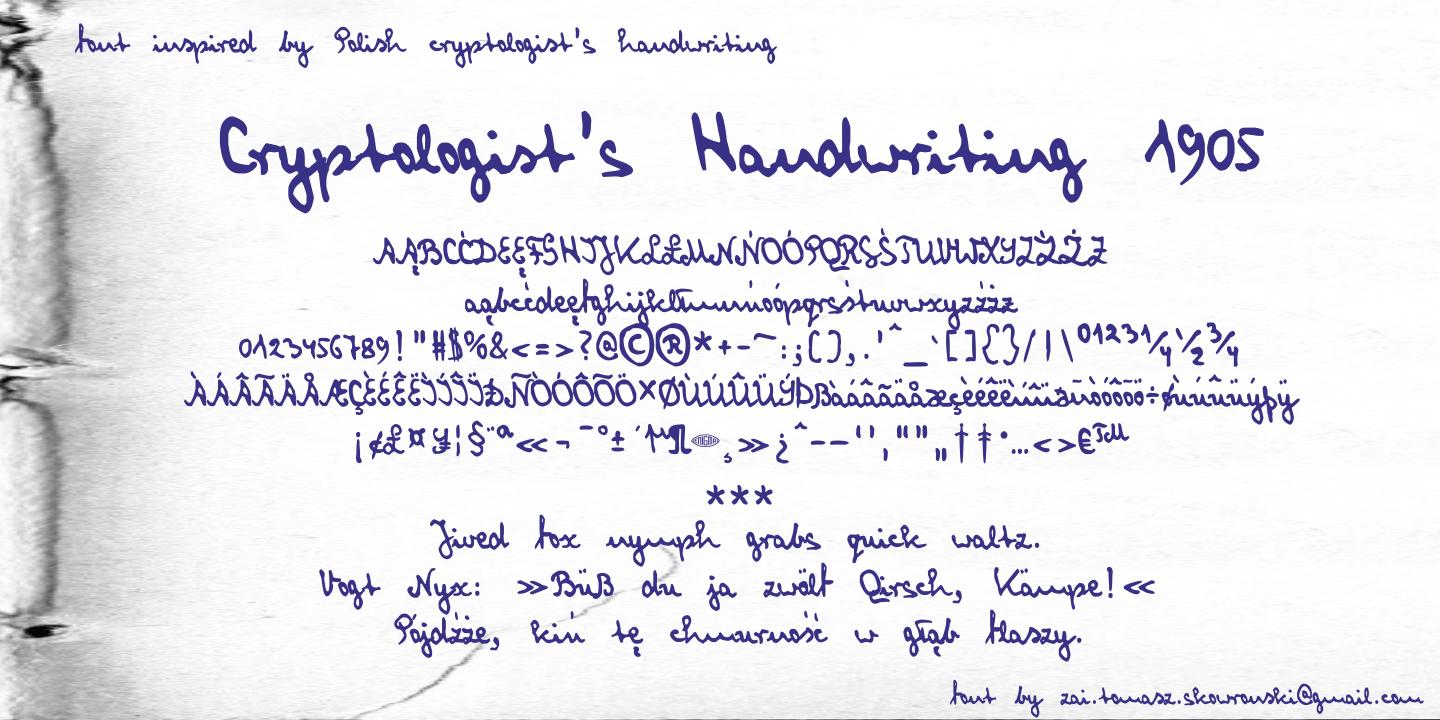 font inspired by Polish cryptologist's handwriting
Cryptologist's Handwriting 1905
AĄBCĆDEĘFGHIJKLŁMNŃOÓPQRSŚTUVWXYZŹŻƵ
aąbcćdeęfghijklłmnńoópqrsśtuvwxyzźżƶ
0123456789!"#$%&<=>?@©®*+-~:;(),.'^_`[]{}/|\⁰¹²³¼½¾
ÀÁÂÃÄÅÆÇÈÉÊËÌÍÎÏÐÑÒÓÔÕÖ×ØÙÚÛÜÝÞßàáâãäåæçèéêëìíîïðñòóôõö÷øùúûüýþÿ
¡¢£¤¥¦§¨ª«¬¯°±´¹µ¶ENIGMA¸»¿ˆ–—‘’‚“”„†‡•…‹›€™
***
Jived fox nymph grabs quick waltz.
Vogt Nyx: »Büß du ja zwölf Qirsch, Kämpe!«
Pójdźże, kiń tę chmurność w głąb flaszy.
font by zai.tomasz.skowronski@gmail.com